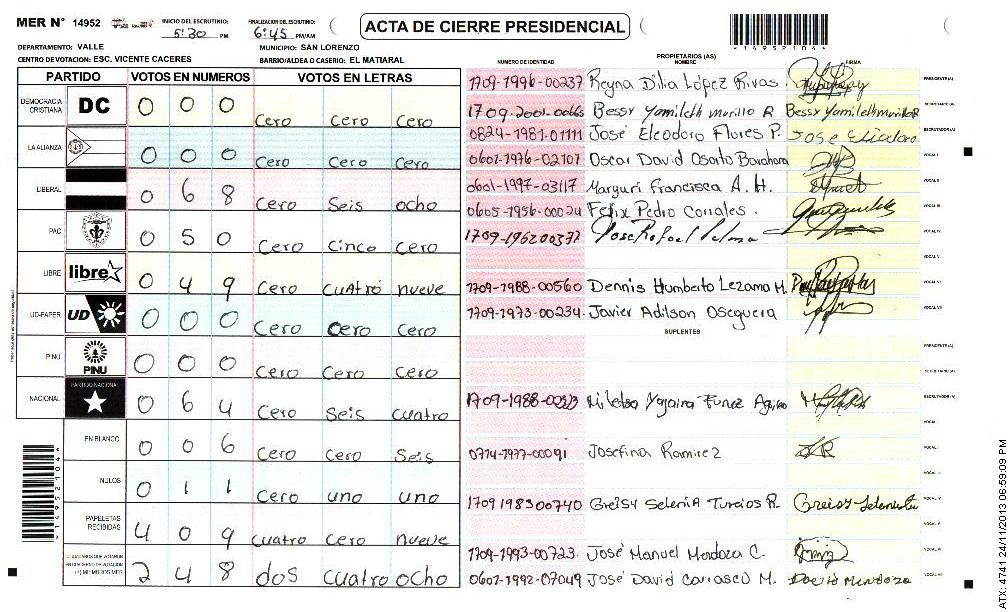 MER N° 14952 INICIO DEL ESCRUTINIO: 5:30 PM FINALIZACION DEL ESCRUTINIO: 6:45 PM/AM
ACTA DE CIERRE PRESIDENCIAL
*14952104*
DEPARTAMENTO: VALLE MUNICIPIO: SAN LORENZO
CENTRO DE VOTACION: ESC. VICENTE CACERES BARRIO/ALDEA O CASERIO: EL MATIARAL
PARTIDO VOTOS EN NUMEROS VOTOS EN LETRAS
DEMOCRACIA CRISTIANA DC 0 0 0 cero cero cero
LA ALIANZA 0 0 0 cero cero cero
LIBERAL 0 6 8 cero seis ocho
PAC 0 5 0 cero cinco cero
LIBRE libre 0 4 9 cero cuatro nueve
UD-FAPER UD 0 0 0 cero cero cero
PINU PINU 0 0 0 cero cero cero
NACIONAL PARTIDO NACIONAL 0 6 4 cero seis cuatro
EN BLANCO 0 0 6 cero cero seis
NULOS 0 1 1 cero uno uno
PAPELETAS RECIBIDAS 4 0 9 cuatro cero nueve
CIUDADANOS QUE VOTARON EN CUADERNO DE VOTACION (+) MIEMBROS MER 2 4 8 dos cuatro ocho
*14952104*
PROPIETARIOS (AS)
NUMERO DE IDENTIDAD NOMBRE FIRMA
1709-1996-00237 Reyna Dilia López Rivas. PRESIDENTE(A)
1709-2001-0066 Bessy Yamileth murillo R Bessy Yamileth murillo R SECRETARIO(A)
0824-1981-01111 José Eleodoro Flores P. ESCRUTADOR(A)
0601-1976-02107 Oscar David Osorto VOCAL I
0601-1997-03117 Maryuri Francisca A. H. VOCAL II
0605-1956-00024 Félix Pedro Corrales. VOCAL III
1709-1962 00377 Jose Rafael VOCAL IV
VOCAL V
1709-1988-00560 Dennis Humberto Lezama M. VOCAL VI
1709-1973-00234 Javier Adilson Oseguera VOCAL VII
SUPLENTES
PRESIDENTE(A)
SECRETARIO(A)
1709-1988-00313 Yojaira Funez ESCRUTADOR(A)
VOCAL I
0714-1977-00091 Josefina Ramirez JR VOCAL II
VOCAL III
1709 1983 00740 Greisy Selenia Turcios R. VOCAL IV
VOCAL V
1709-1993-00723. José Manuel Mendoza C. VOCAL VI
0601-1992-07049 José David Carrasco M. David Mendoza VOCAL VII
ATX: 4741 24/11/2013 06:59:09 PM